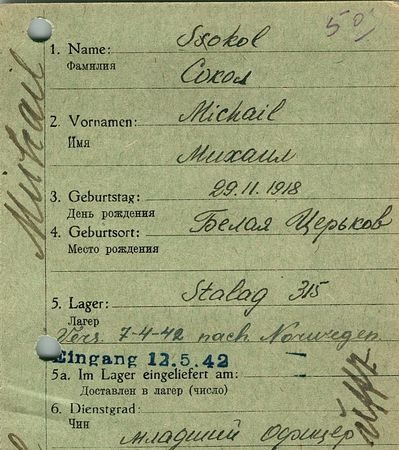 50
1. Name: Ssokol
Фамилия
Сокол
Michail
2. Vornamen: Michail
Имя
Михаил
3. Geburtstag: 29.11.1918
День рождения
4. Geburtsort: Белая Церьков
Место рождения
5. Lager: Stalag 315
Лагер
Vers. 7-4-42 nach Norwegen
Eingang 12.5.42
5a. Im Lager eingeliefert am:
Доставлен в лагер (число)
6. Dienstgrad:
Чин
младший офицер